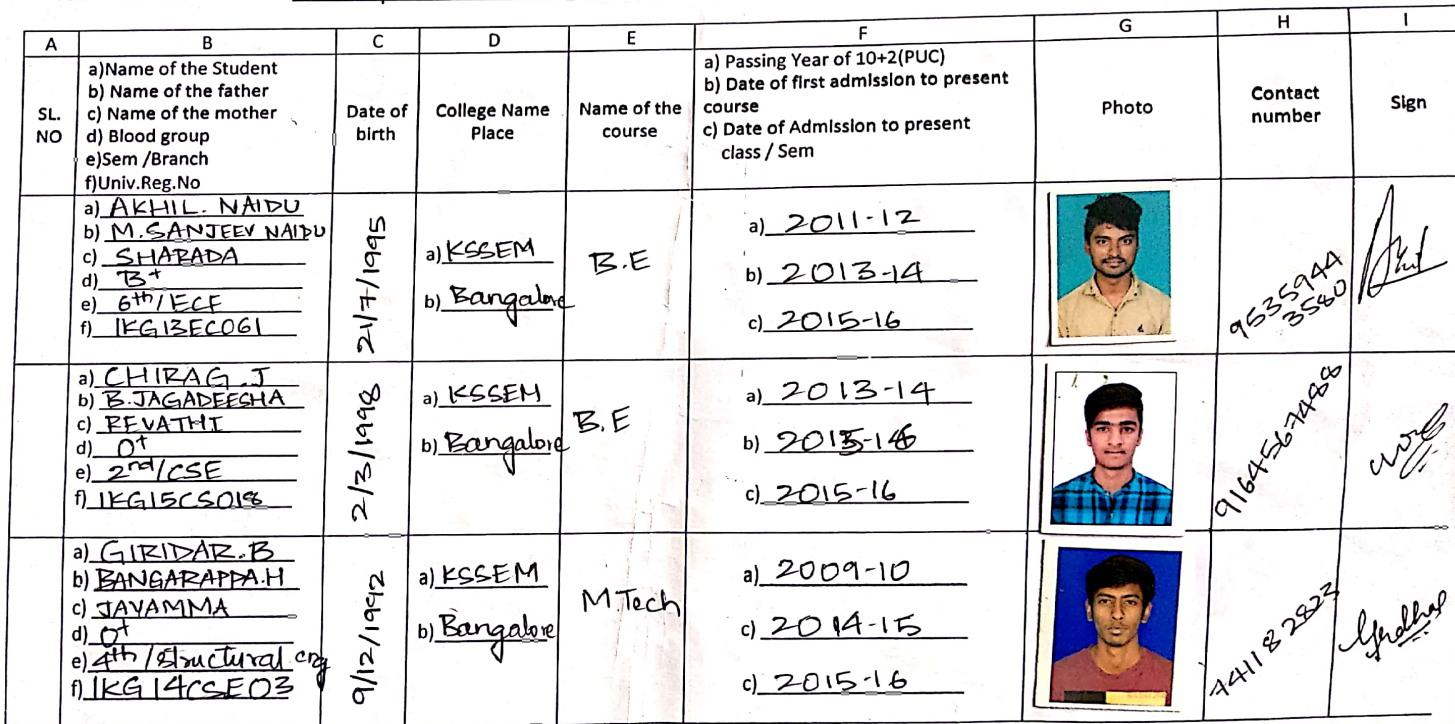 A B C D E F G H I
SL. NO
a)Name of the Student
b) Name of the father
c) Name of the mother
d) Blood group
e)Sem /Branch
f)Univ.Reg.No
Date of birth
College Name Place
Name of the course
a) Passing Year of 10+2(PUC)
b) Date of first admission to present course
c) Date of Admission to present class / Sem
Photo
Contact number
Sign
a) AKHIL. NAIDU
b) M.SANJEEV NAIDU
c) SHARADA
d) B+
e) 6th/ECE
f) 1KG13EC061
21/7/1995
a) KSSEM
b) Bangalore
B.E
a) 2011-12
b) 2013-14
c) 2015-16
9535944
3580
a) CHIRAG.J
b) B.JAGADEESHA
c) REVATHI
d) O+
e) 2nd/CSE
f) 1KG15CS018
2/3/1998
a) KSSEM
b) Bangalore
B.E
a) 2013-14
b) 2015-16
c) 2015-16
9164567488
a) GIRIDAR.B
b) BANGARAPPA.H
c) JAYAMMA
d) O+
e) 4th/structural eng
f) 1KG14CSE03
9/12/1992
a) KSSEM
b) Bangalore
M.Tech
a) 2009-10
c) 2014-15
c) 2015-16
744118 2823